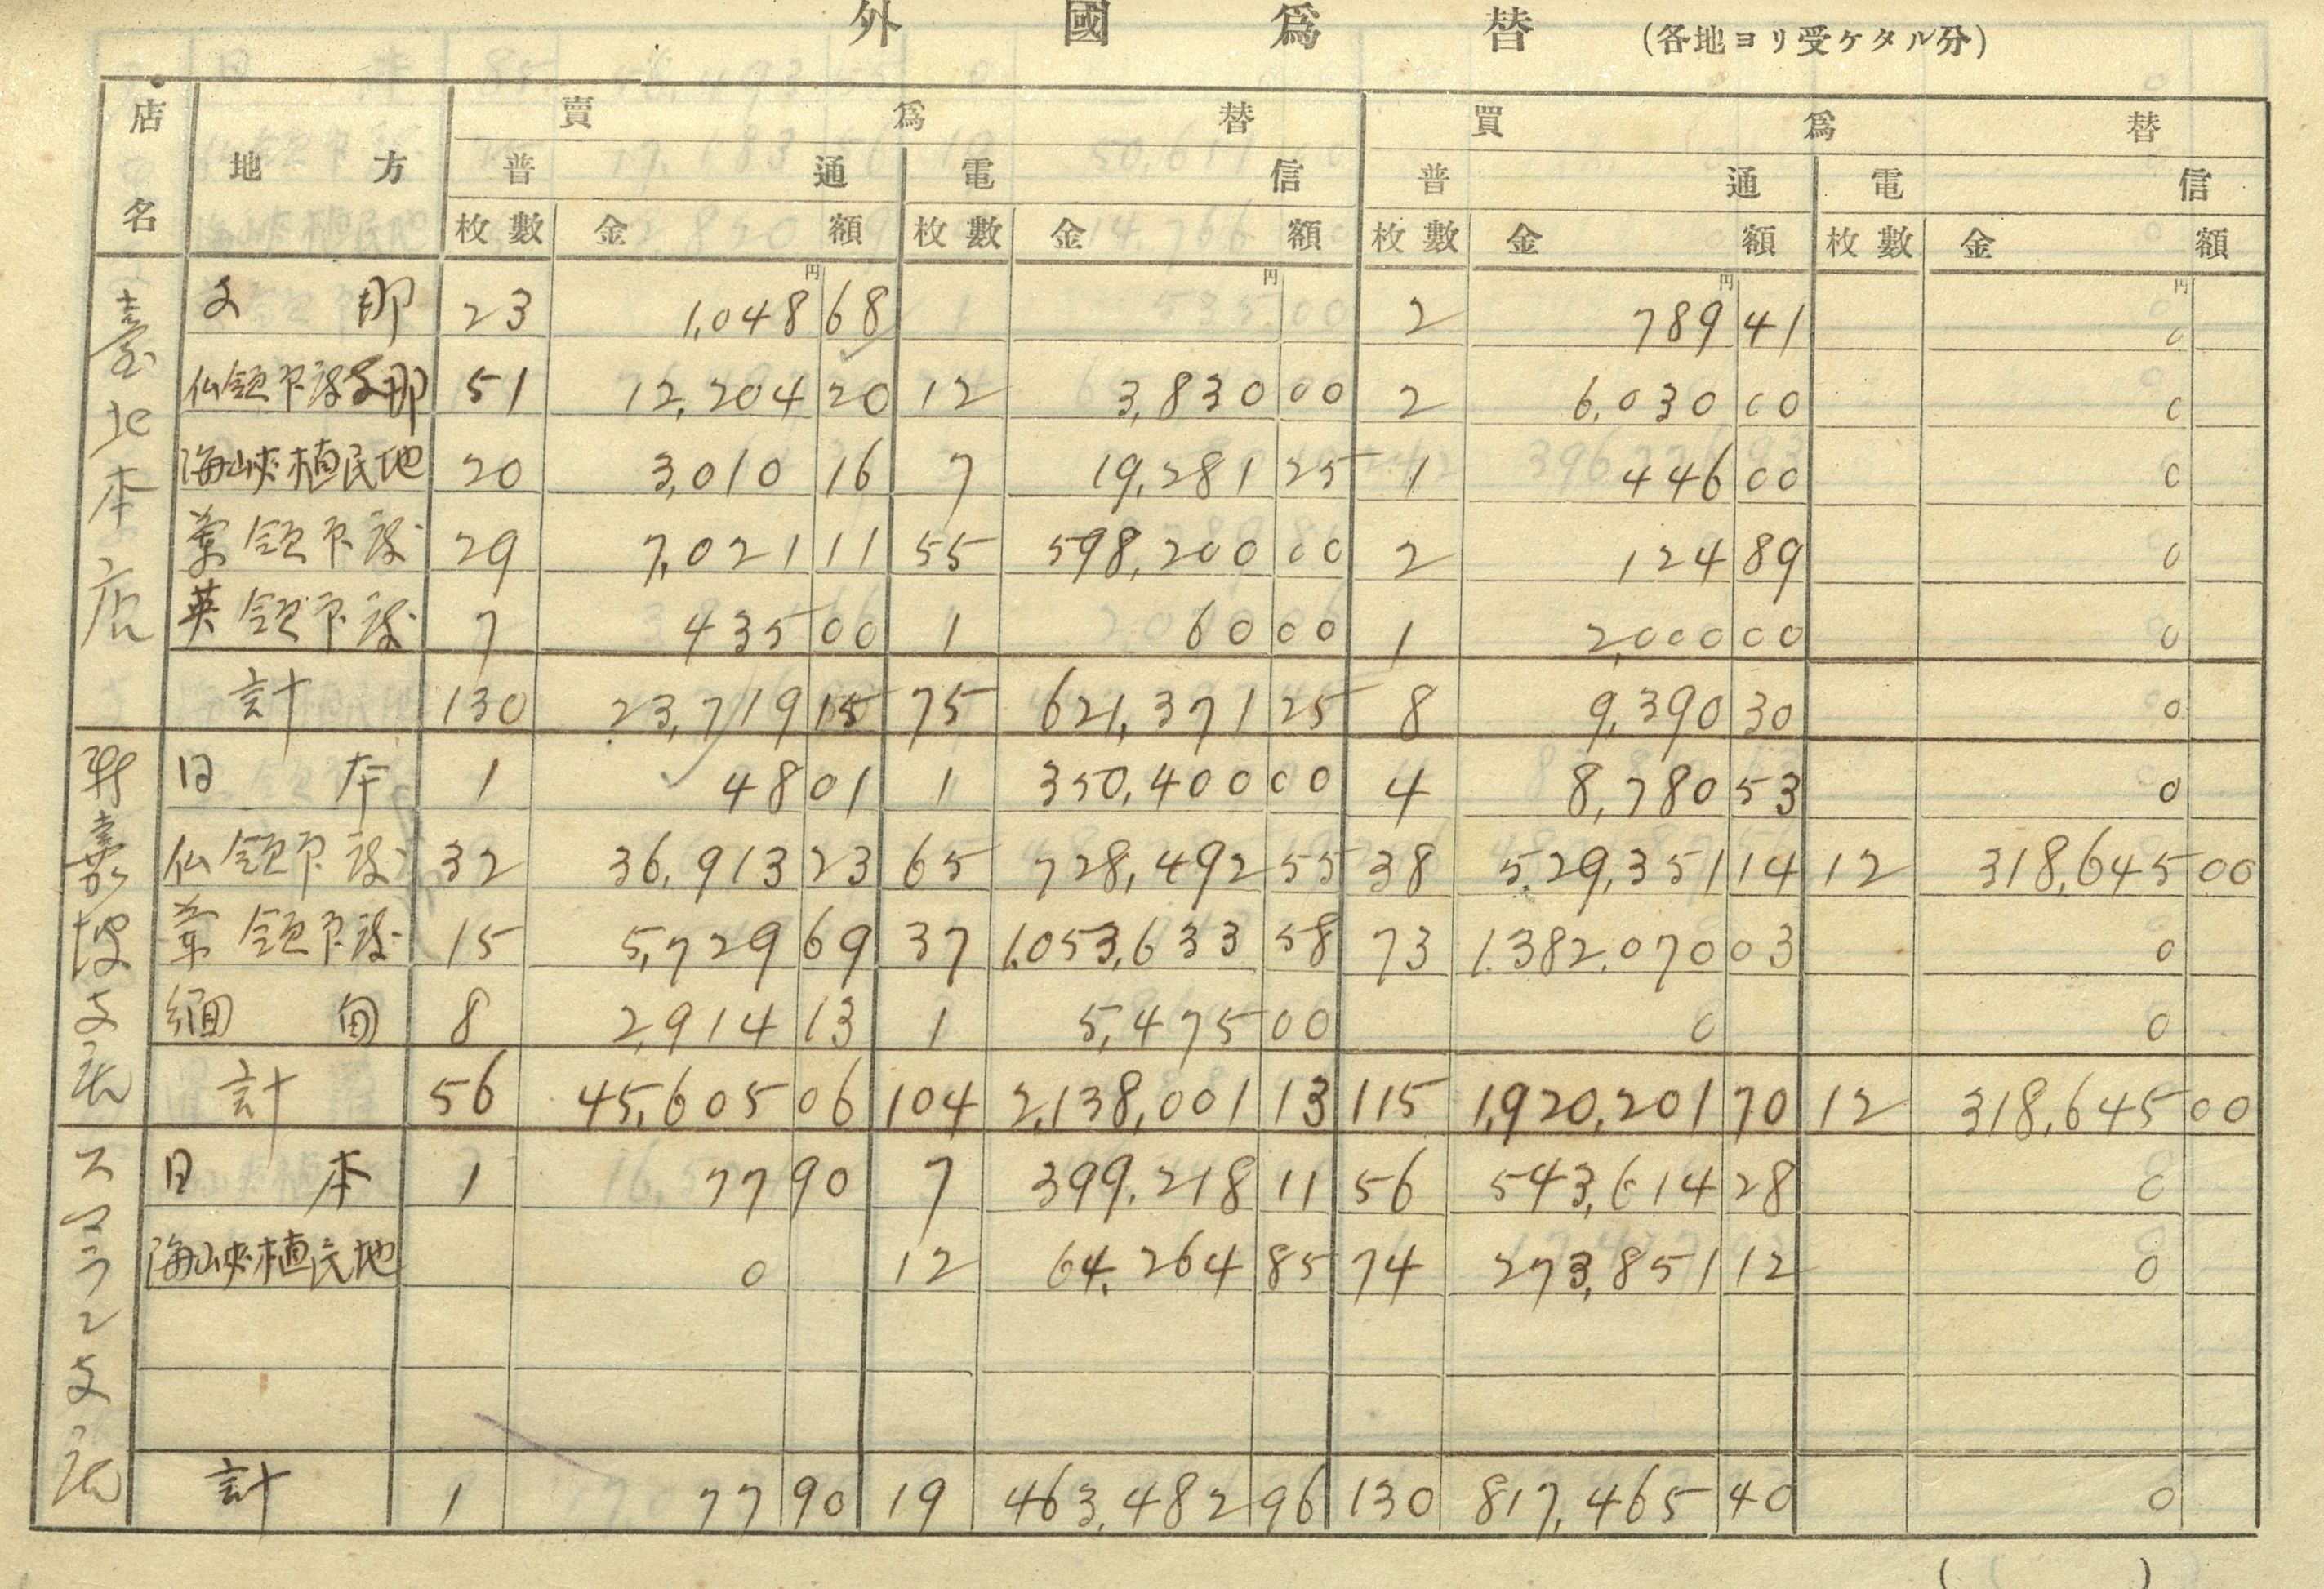 外國爲替 (各地ヨリ受ケタル分)
店名 地方 賣爲替 買爲替
普通 電信 普通 電信
枚數 金額 枚數 金額 枚數 金額 枚數 金額
円 円 円 円
臺北本店
支那 23 1,048 68 2 789 41 0
仏領印度支那 51 12,204 20 12 3,830 00 2 6,030 00 0
海峡植民地 20 3,010 16 7 19,281 25 1 446 00 0
蘭領印度 29 7,021 11 55 598,200 00 2 124 89 0
英領印度 7 435 00 1 60 00 1 2,000 00 0
計 130 23,719 15 75 621,371 25 8 9,390 30 0
新嘉坡支店
日本 1 48 01 1 350,400 00 4 8,780 53 0
仏領印度 32 36,913 23 65 728,492 55 38 529,351 14 12 318,645 00
蘭領印度 15 5,729 69 37 1,053,633 58 73 1,382,070 03 0
緬甸 8 2,914 13 1 5,475 00 0 0
計 56 45,605 06 104 2,138,001 13 115 1,920,201 70 12 318,645 00
スマラン支店
日本 1 77 90 7 399,218 11 56 543,614 28 0
海峡植民地 0 12 64,264 85 74 273,851 12 0
計 1 77 90 19 463,482 96 130 817,465 40 0
( )